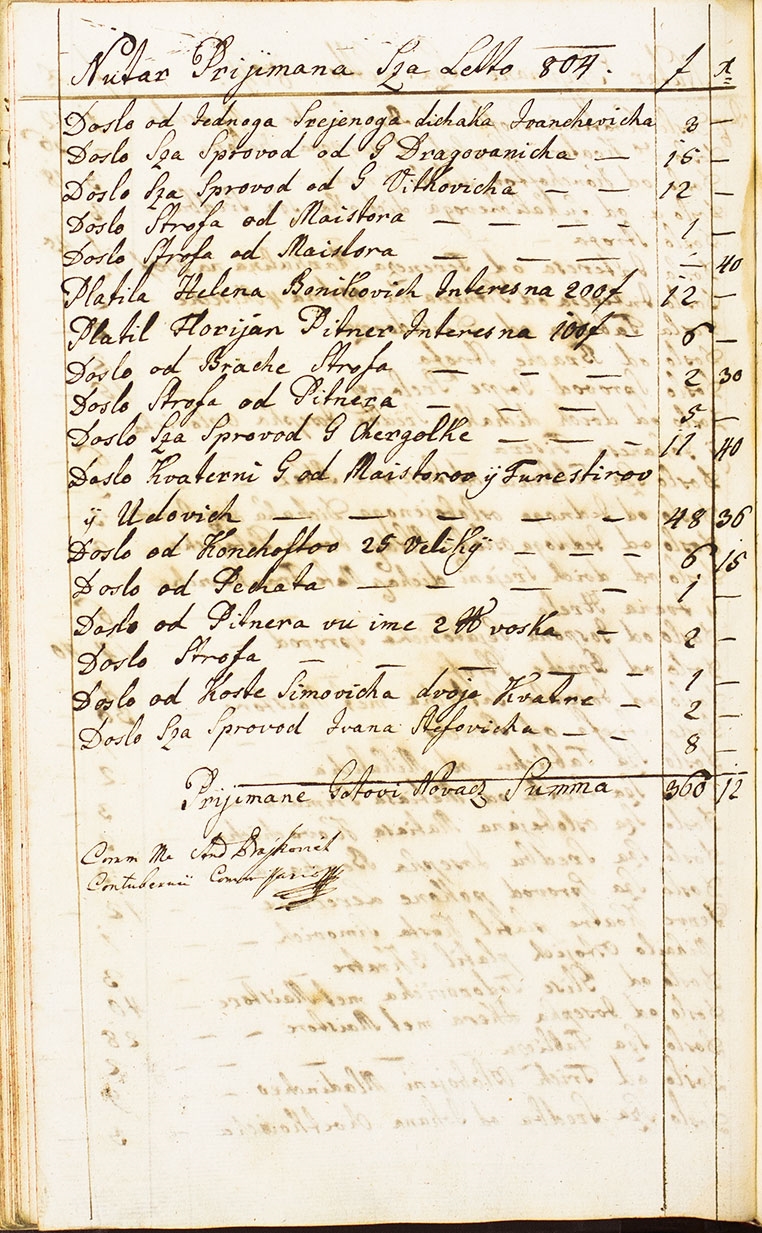 Nutar Prijimana Sza Letto 804. f x
Doslo od Jednoga Srejenoga dichaka Ivanchevicha 3 —
Doslo Sza Sprovod od G Dragovanicha — 15 —
Doslo Sza Sprovod od G Vitkovicha — — 12 —
Doslo Strofa od Maistora — — — — 1 —
Doslo Strofa od Maistora — — — — 40
Platila Helena Bonikovich Interesna 200f 12 —
Platil Florijan Pitner Interesna 100f — 6 —
Doslo od Brache Strofa — — — 2 30
Doslo Strofa od Pitnera — — — 5 —
Doslo Sza Sprovod G Chergolke — — — 17 40
Doslo Kvaterni G od Maistorov ÿ Furestirov
ÿ Udovich — — — — — 48 36
Doslo od Konchostov 25 Velikÿ — — — 6 15
Doslo od Pechata — — — — 1 —
Doslo od Pitnera vu ime 2 ℔ voska — 2 —
Doslo Strofa — — — — — 1 —
Doslo od Koste Simovicha dvoje Kvatre — 2 —
Doslo Sza Sprovod Ivana Stefovicha — — 8 —
Prijimane Gotovi Novacz Summa 360 12
Coram Me And
Contubernii Commissario